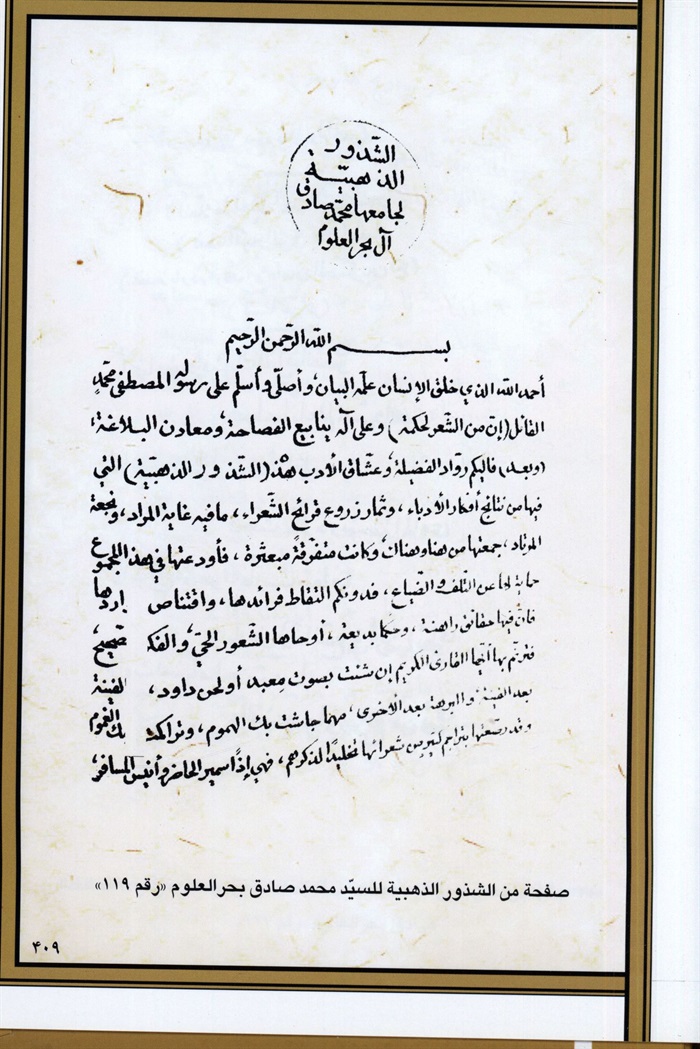 الشّذور
الذهبيّة
لجامعها محمّد صادق
آل بحر العلوم
بسم الله الرّحمن الرّحيم
أحمد الله الذي خلق الإنسان علّمه البيان، وأصلّي وأسلّم على رسوله المصطفى محمّدٍ
القائل (إن من الشّعر لحكمة) وعلى آله ينابيع الفصاحة، ومعادن البلاغة،
(وبعد) فاليكم روّاد الفضيلة، وعشّاق الأدب هذه (الشّذور الذهبيّة) التي
فيها من نتائج أفكار الأدباء، وثمار زروع قرائح الشّعراء، مافيه غاية المراد، ونجعة
المرتاد، جمعتها من هنا وهناك، وكانت متفرّقةً مبعثرة، فأودعتها في هذا المجموع
حمايةً لها عن التّلف والضّياع، فدونكم التقاط فرائدها، واقتناص
فانّ فيها حقائق راهنة، وحكما بديعة، أوحاها الشّعور الحيّ، والفكر صحيح
فترنّم بها أيّها القارئ الكريم إن شئت بصوت معبد، أو لحن داود، الفينة
بعد الفينة، والبرهة بعد الأخرى، مهما جاشت بك الهموم، وتراكمت بك الغموم
وقد رصّعتها بتراجم لشعرائها تخليدًا لذكرهم، فهي إذًا سمير الحاضر، وأنيس المسافر،
صفحة من الشذور الذهبية للسيّد محمد صادق بحر العلوم «رقم ١١٩»
٤٠٩